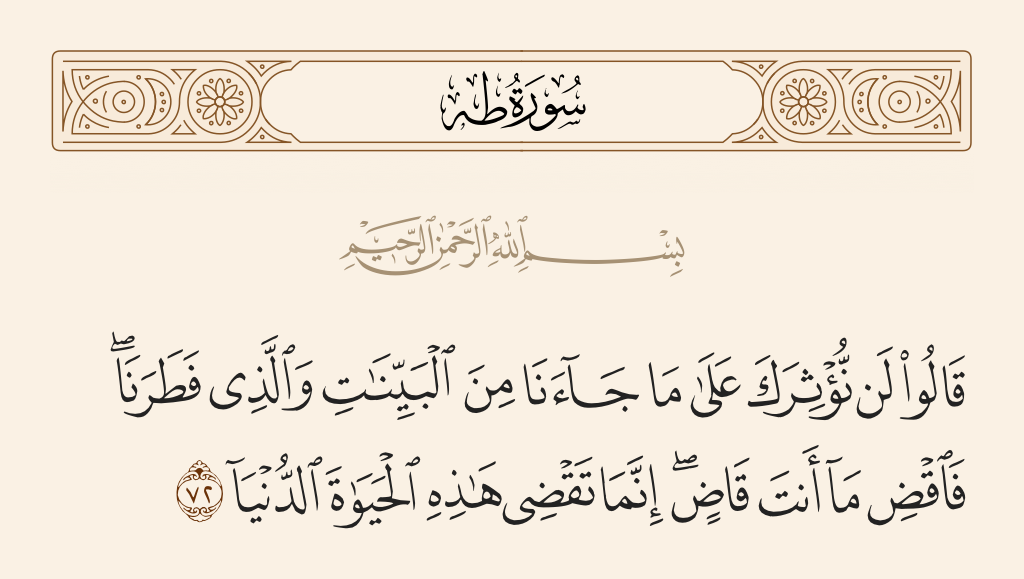 سُورَةُ طه
بِسْمِ ٱللَّهِ ٱلرَّحْمَٰنِ ٱلرَّحِيمِ
قَالُوا۟ لَن نُّؤْثِرَكَ عَلَىٰ مَا جَآءَنَا مِنَ ٱلْبَيِّنَـٰتِ وَٱلَّذِى فَطَرَنَا ۖ
فَٱقْضِ مَآ أَنتَ قَاضٍ ۖ إِنَّمَا تَقْضِى هَـٰذِهِ ٱلْحَيَوٰةَ ٱلدُّنْيَآ ٧٢